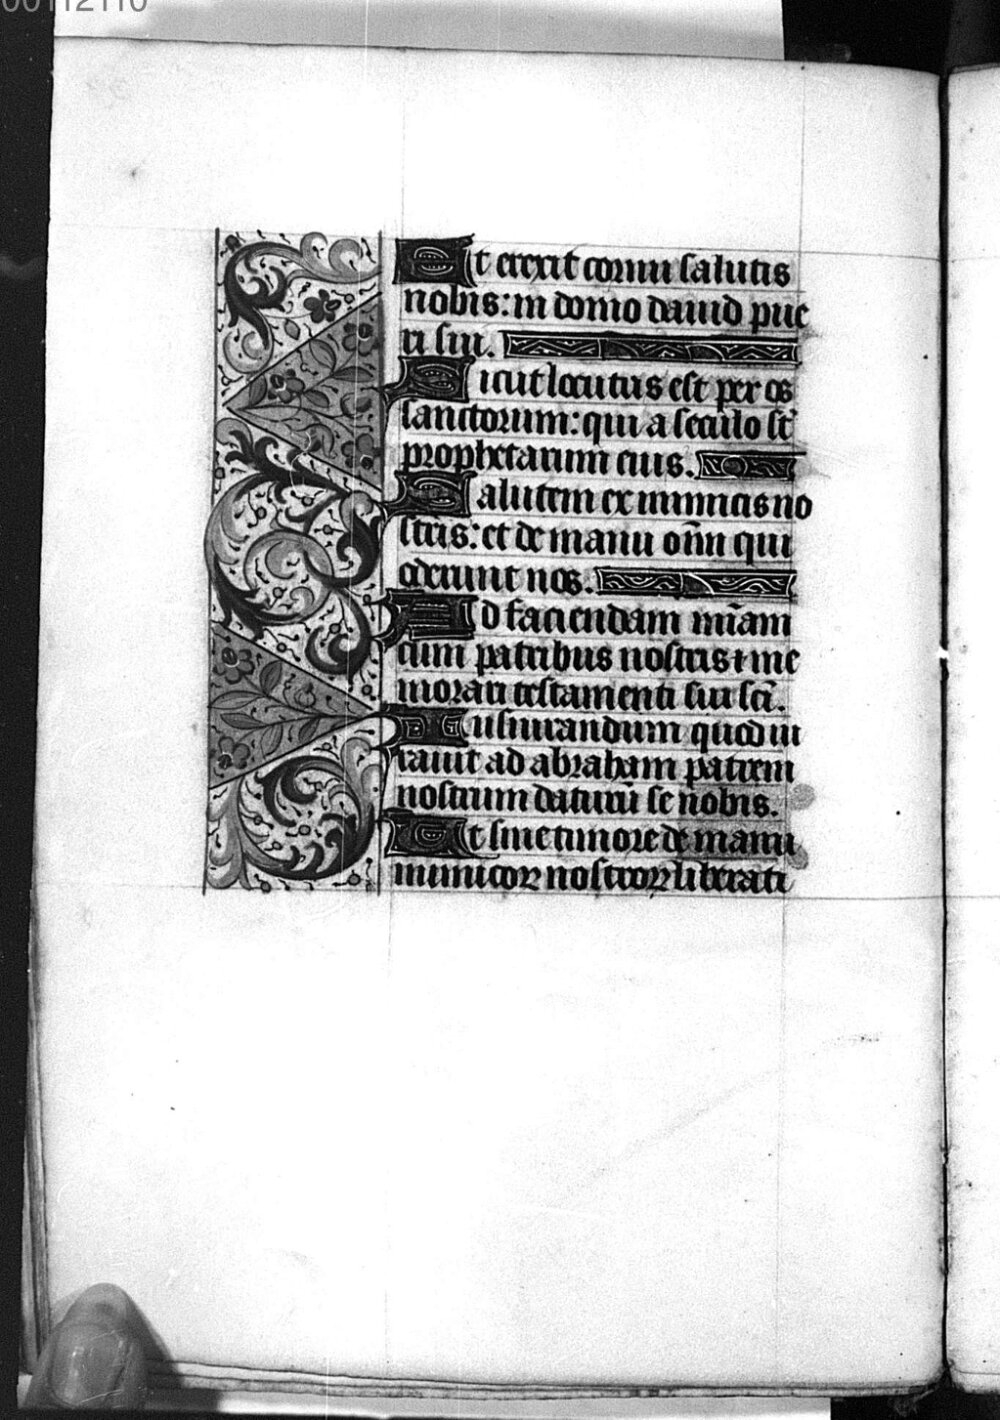 00112110
Et erexit cornu salutis
nobis: in domo dauid pue
ri sui.
Sicut locutus est per os
sanctorum: qui a seculo sc̄
prophetarum eius.
Salutem ex inimicis no
stris: et de manu om̄n qui
oderunt nos.
Ad faciendam mīam
cum patribus nostris ⁊ me
morari testamenti sui scī.
Iusiurandum quod iu
rauit ad abraham patrem
nostrum daturū se nobis.
Et sine timore de manu
inimicoꝝ nostroꝝ liberati